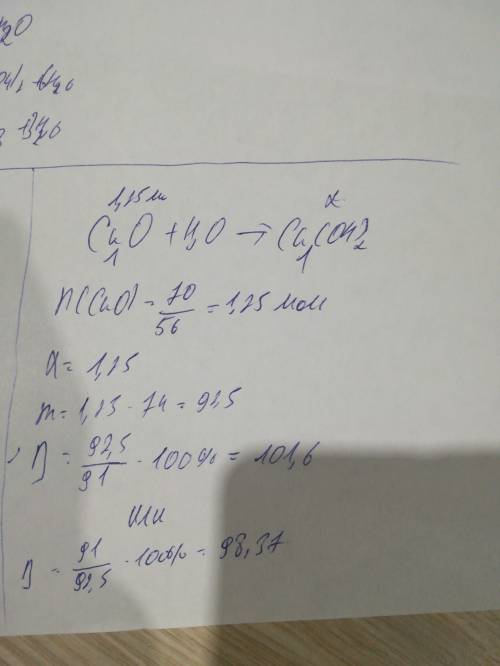 H2O
6H2O
H2O
1,25 м x
CaO + H2O → Ca(OH)2
1 1
n(CaO) = 70/56 = 1,25 моль
x = 1,25
m = 1,25 · 74 = 92,5
η = 92,5/91 · 100% = 101,6
или
η = 91/92,5 · 100% = 98,37